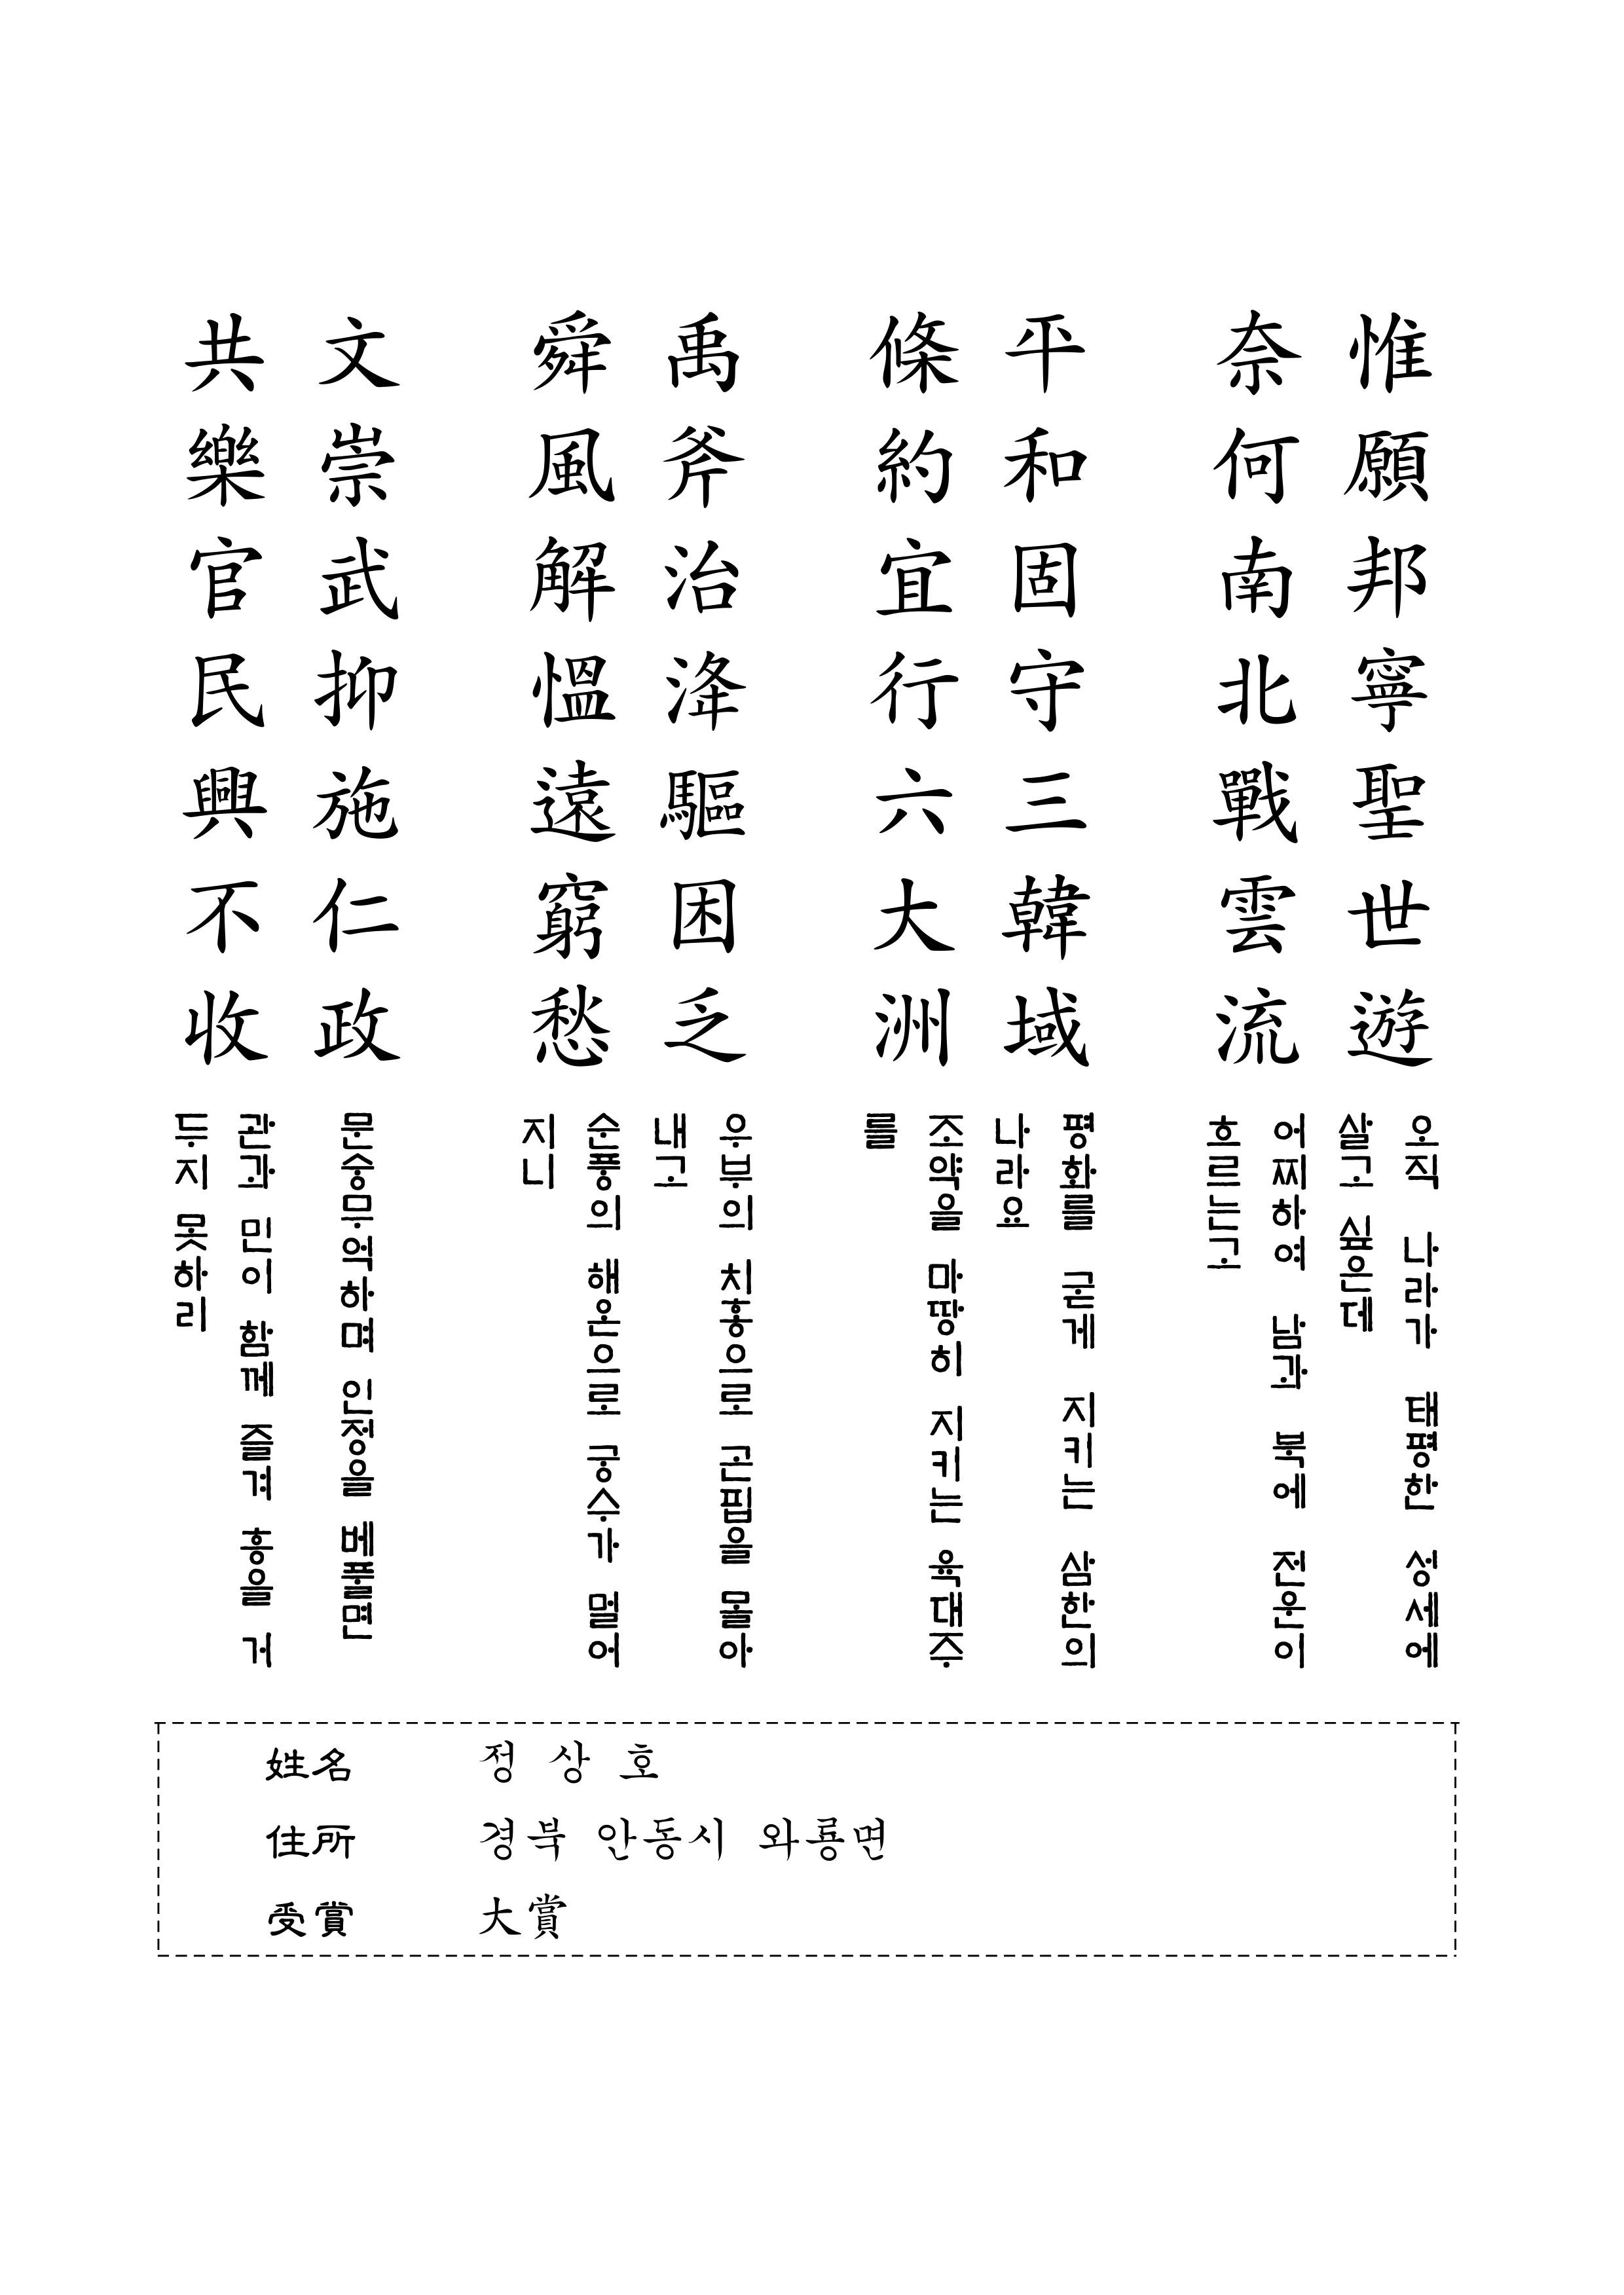 惟願邦寧聖世遊
오직 나라가 태평한 성세에
살고 싶은데
奈何南北戰雲流
어찌하여 남과 북에 전운이
흐르는고
平和固守三韓域
평화를 굳게 지키는 삼한의
나라요
條約宜行六大洲
조약을 마땅히 지키는 육대주
를
禹斧治洚驅困乏
우부의 치홍으로 곤핍을 몰아
내고
舜風解慍遠窮愁
순풍의 해온으로 궁수가 멀어
지니
文崇武抑施仁政
문숭무억하며 인정을 베풀면
共樂官民興不收
관과 민이 함께 즐겨 흥을 거
두지 못하리
姓名 정 상 호
住所 경북 안동시 와룡면
受賞 大賞